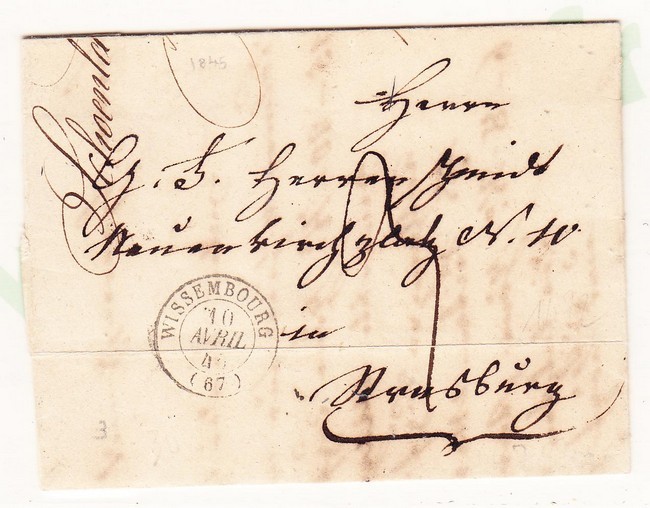 1845
Herrn
G. F. Herrenschmidt
Neuenkirchplatz N. 10
in
Strasburg
WISSEMBOURG
10
AVRIL
(67)
3